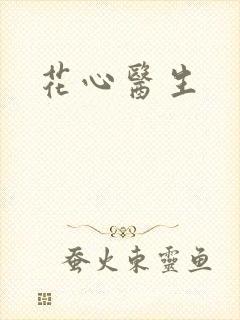 花心醫生
蚕火東靈鱼